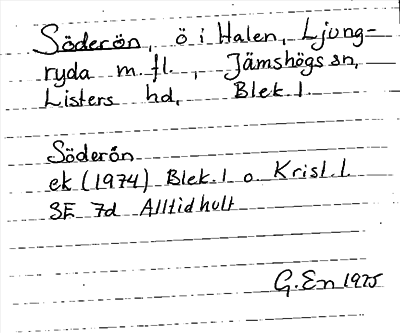 Söderön, ö i Halen, Ljung-
ryda m fl., Jämshögs sn,
Listers hd, Blek l.
Söderön
ek (1974) Blek. l o. Krist. l.
3E 7d Alltidhult
G. En 1975